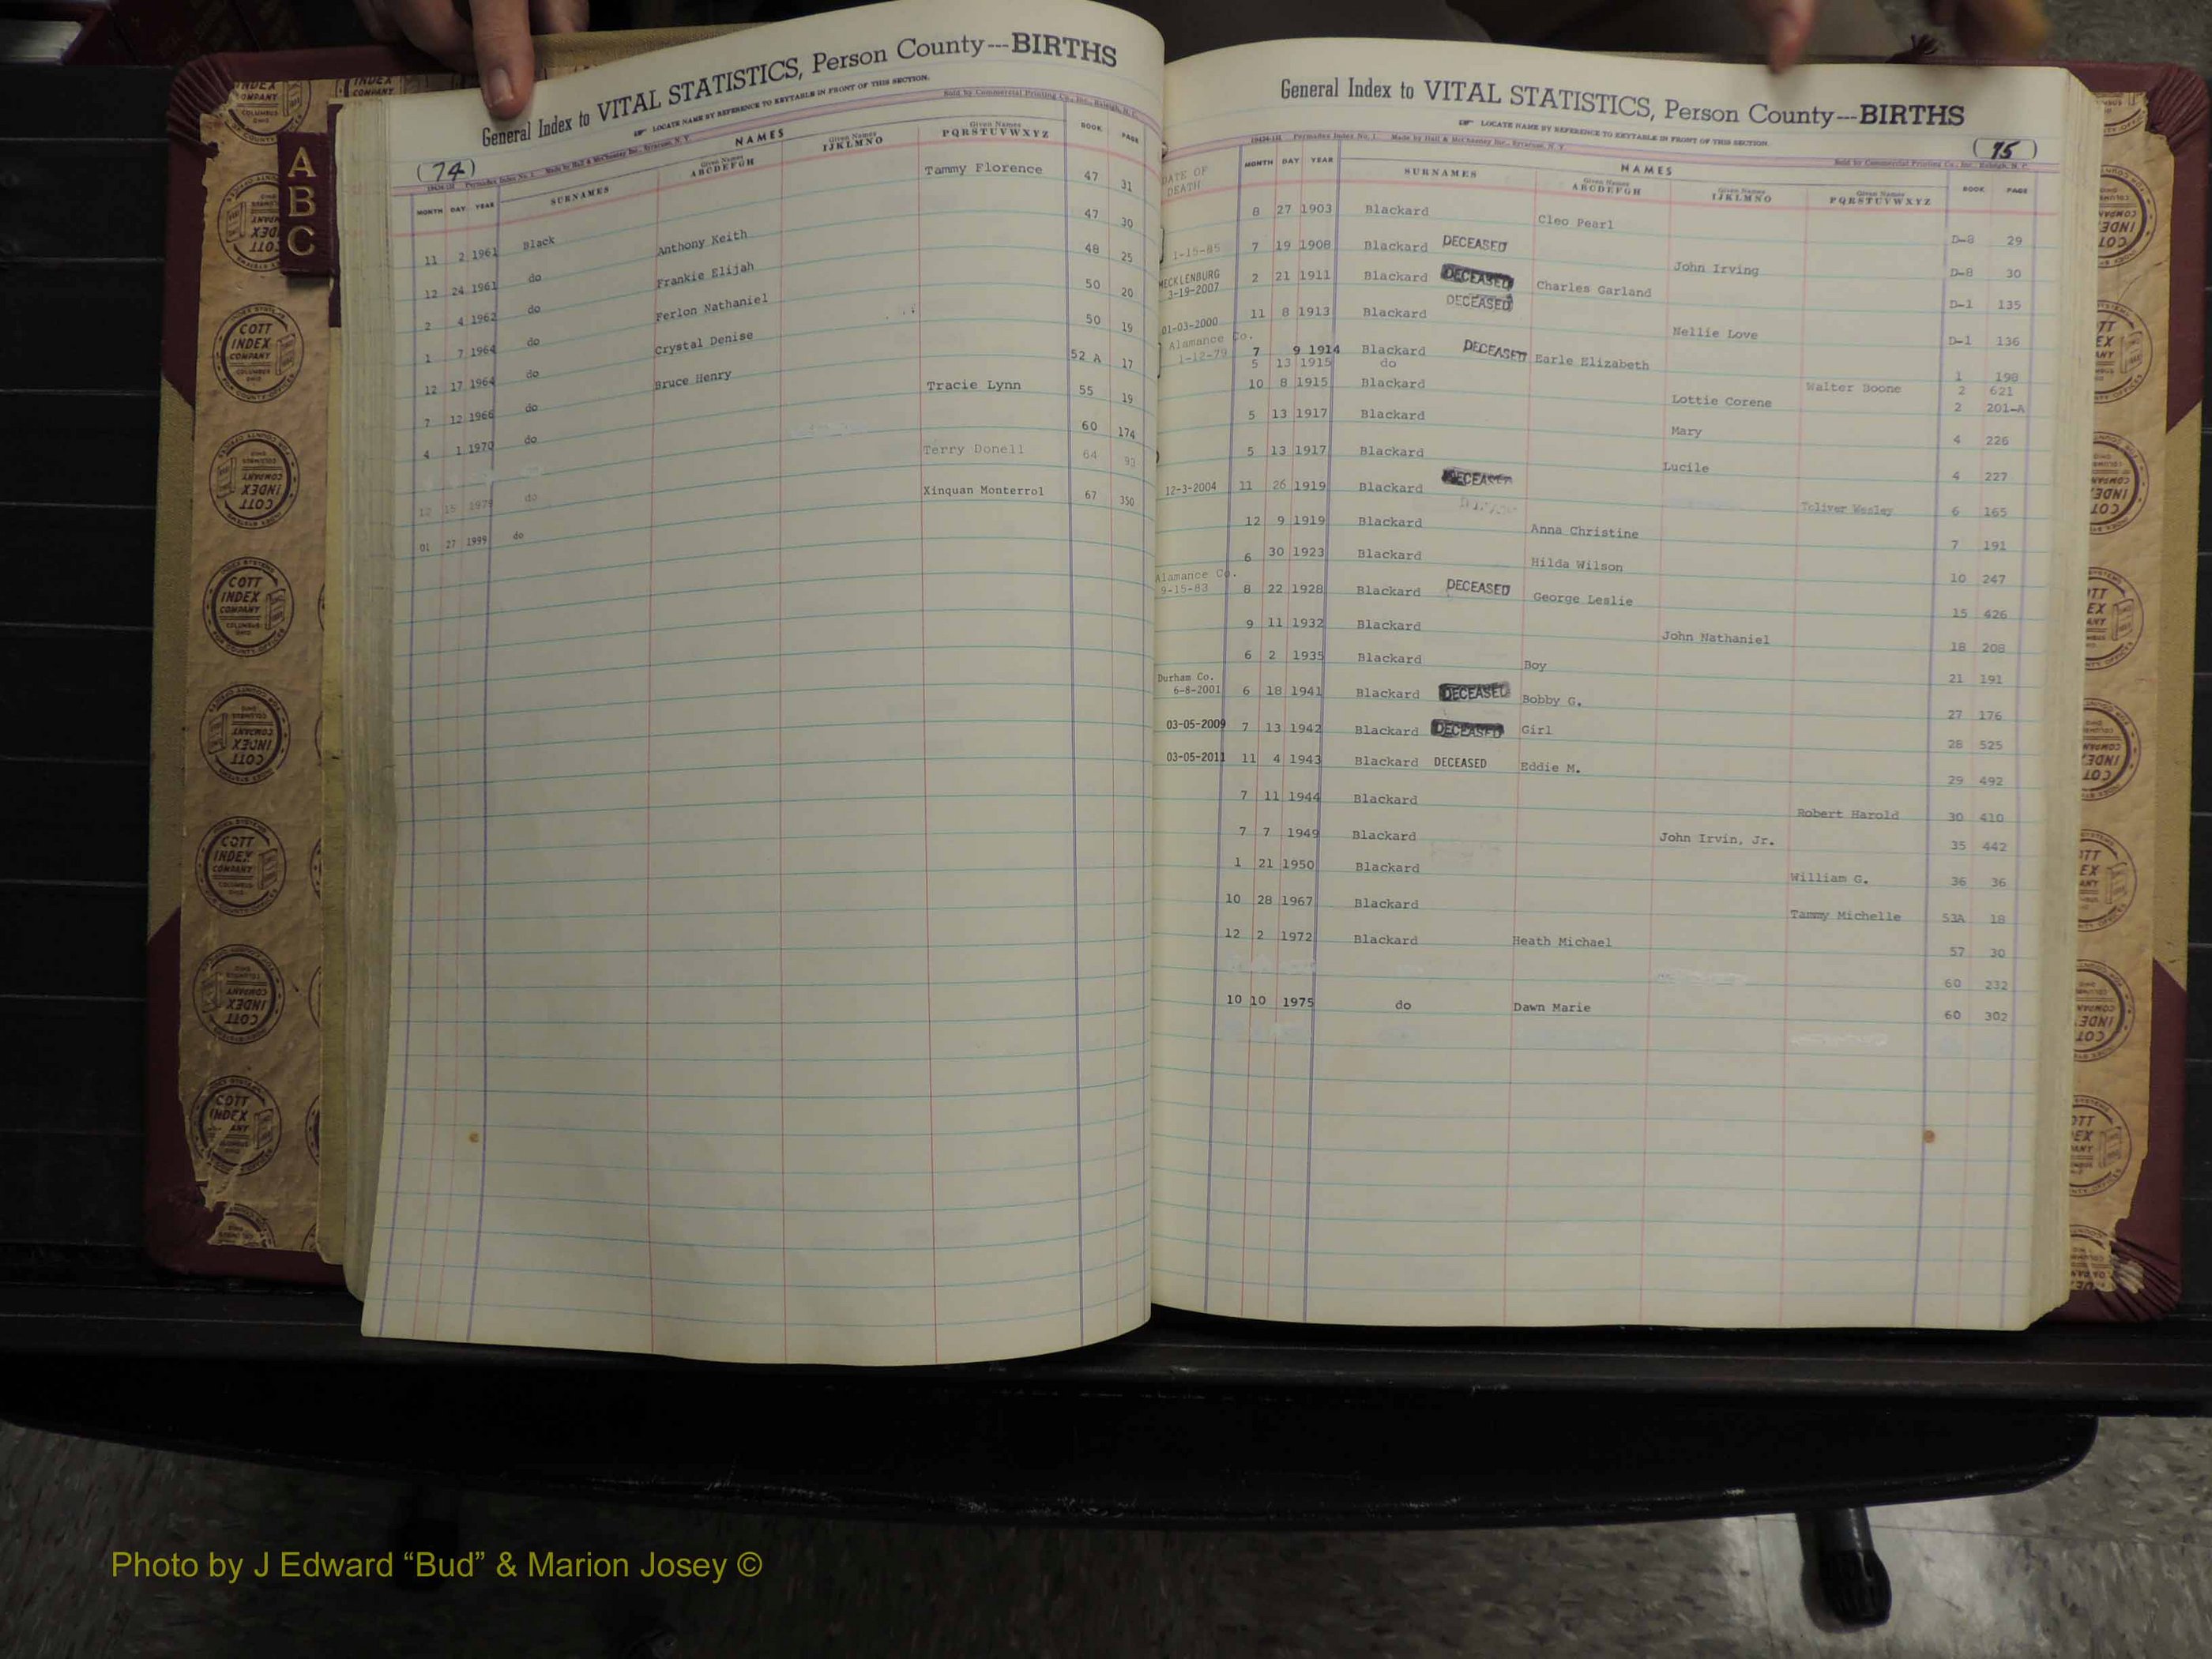 General Index to VITAL STATISTICS, Person County---BIRTHS
LOCATE NAME BY REFERENCE TO KEYTABLE IN FRONT OF THIS SECTION.
(74)
Sold by Commercial Printing Co., Inc., Raleigh, N. C.
NAMES
MONTH DAY YEAR SURNAMES Given Names ABCDEFGH Given Names IJKLMNO Given Names PQRSTUVWXYZ BOOK PAGE
11 2 1961 Black Tammy Florence 47 31
12 24 1961 do Anthony Keith 47 30
2 4 1962 do Frankie Elijah 48 25
1 7 1964 do Ferlon Nathaniel 50 20
12 17 1964 do Crystal Denise 50 19
7 12 1966 do Bruce Henry 52 A 17
4 1 1970 do Tracie Lynn 55 19
60 174
do Terry Donell 64 93
01 27 1999 do Xinquan Monterrol 67 350
General Index to VITAL STATISTICS, Person County---BIRTHS
LOCATE NAME BY REFERENCE TO KEYTABLE IN FRONT OF THIS SECTION.
(75)
NAMES
DATE OF DEATH MONTH DAY YEAR SURNAMES Given Names ABCDEFGH Given Names IJKLMNO Given Names PQRSTUVWXYZ BOOK PAGE
8 27 1903 Blackard Cleo Pearl D-8 29
1-15-85 7 19 1908 Blackard DECEASED John Irving D-8 30
MECKLENBURG
3-19-2007 2 21 1911 Blackard DECEASED Charles Garland D-1 135
01-03-2000 11 8 1913 Blackard DECEASED Nellie Love D-1 136
Alamance Co.
1-12-79 7 9 1914 Blackard DECEASED Earle Elizabeth 1 198
5 13 1915 do Walter Boone 2 621
10 8 1915 Blackard Lottie Corene 2 201-A
5 13 1917 Blackard Mary 4 226
5 13 1917 Blackard Lucile 4 227
12-3-2004 11 26 1919 Blackard DECEASED Toliver Wesley 6 165
12 9 1919 Blackard Anna Christine 7 191
6 30 1923 Blackard Hilda Wilson 10 247
Alamance Co.
9-15-83 8 22 1928 Blackard DECEASED George Leslie 15 426
9 11 1932 Blackard John Nathaniel 18 208
6 2 1935 Blackard Boy 21 191
Durham Co.
6-8-2001 6 18 1941 Blackard DECEASED Bobby G. 27 176
03-05-2009 7 13 1942 Blackard DECEASED Girl 28 525
03-05-2011 11 4 1943 Blackard DECEASED Eddie M. 29 492
7 11 1944 Blackard Robert Harold 30 410
7 7 1949 Blackard John Irvin, Jr. 35 442
1 21 1950 Blackard William G. 36 36
10 28 1967 Blackard Tammy Michelle 53A 18
12 2 1972 Blackard Heath Michael 57 30
60 232
10 10 1975 do Dawn Marie 60 302
A
B
C
COTT
INDEX
COMPANY
COLUMBUS
OHIO
Photo by J Edward “Bud” & Marion Josey ©